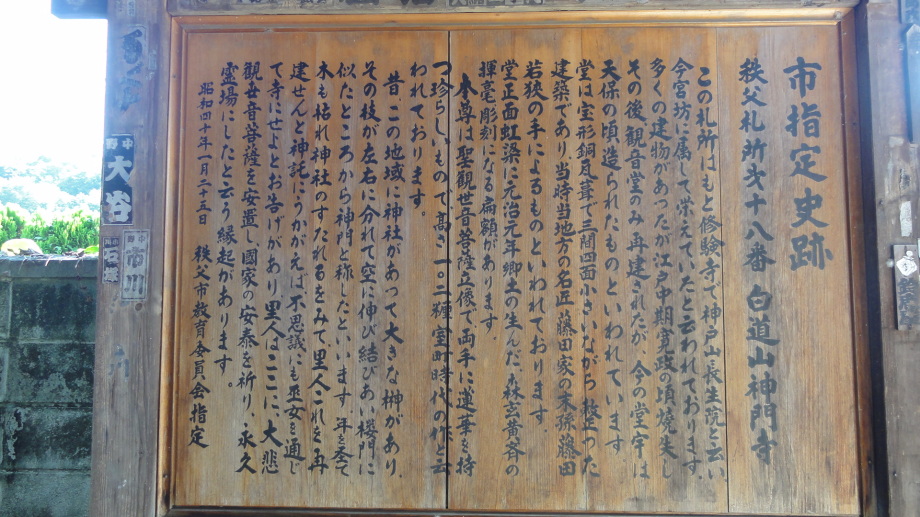 市指定史跡
秩父札所第十八番 白道山神門寺
この札所はもと修験寺で神戸山長生院と云い
今宮坊に属して栄えていたと云われております。
多くの建物があったが江戸中期寛政の頃焼失し
その後観音堂のみ再建されたが、今の堂宇は
天保の頃造られたものといわれています。
堂は宝形銅瓦葺で三間四面小さいながら整った
建築であり、当時当地方の名匠藤田家の末孫藤田
若狭の手によるものといわれております
堂正面虹梁に元治元年郷土の生んだ、森玄黄斎の
揮毫彫刻になる扁額があります。
本尊は聖観世音菩薩立像で両手に蓮華を持
つ珍らしいもので、高さ一〇二糎室町時代の作と云
われております。
昔、この地域に神社があって大きな榊があり、
その枝が左右に分れて空に伸び結びあい楼門に
似たところから神門と称したといいます 年を経て
木も枯れ神社のすたれるをみて、里人これを再
建せんと神託にうかがえば不思議にも巫女を通じ
て寺にせよとお告げがあり里人はここに、大悲
観世音菩薩を安置し國家の安泰を祈り、永久
霊場にしたと云う縁起があります。
昭和四十年一月二十五日 秩父市教育委員会指定
中野
大谷
市川
石橋